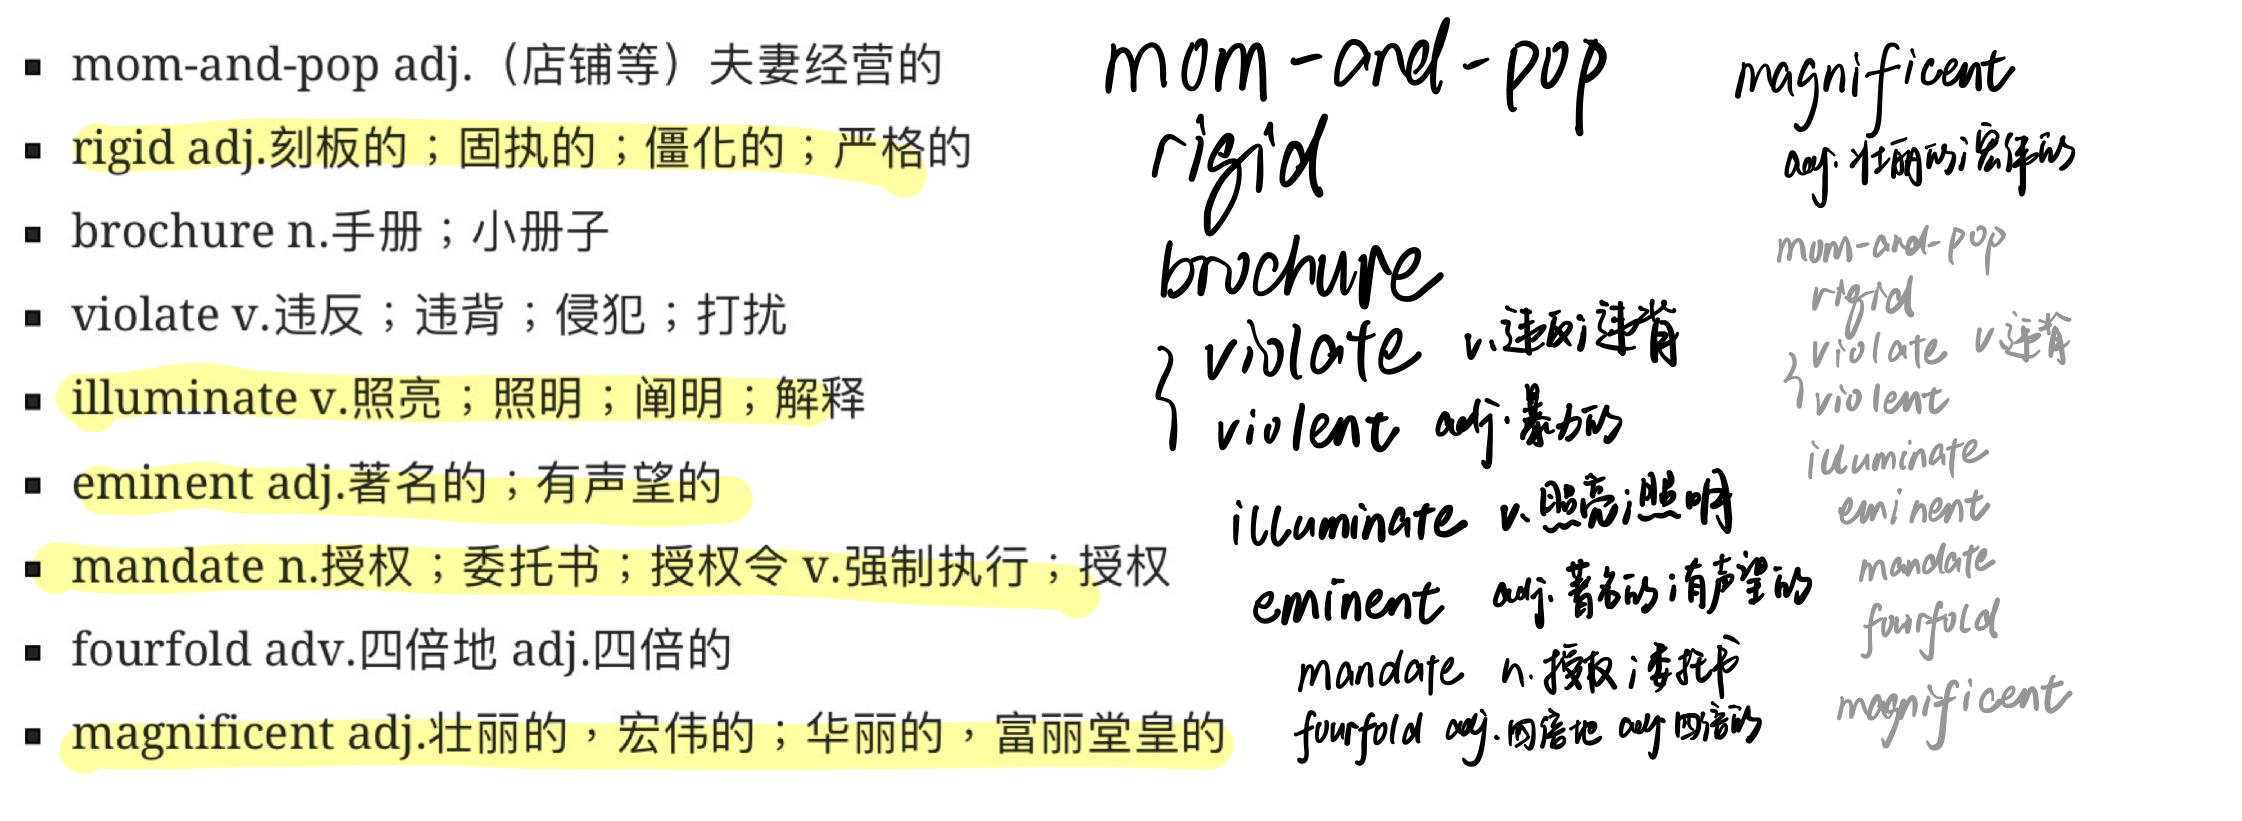 mom-and-pop adj.（店铺等）夫妻经营的
rigid adj.刻板的；固执的；僵化的；严格的
brochure n.手册；小册子
violate v.违反；违背；侵犯；打扰
illuminate v.照亮；照明；阐明；解释
eminent adj.著名的；有声望的
mandate n.授权；委托书；授权令 v.强制执行；授权
fourfold adv.四倍地 adj.四倍的
magnificent adj.壮丽的，宏伟的；华丽的，富丽堂皇的
mom-and-pop
rigid
brochure
violate v.违反；违背
violent adj.暴力的
illuminate v.照亮；照明
eminent adj.著名的；有声望的
mandate n.授权；委托书
fourfold adj.四倍地 adj四倍的
magnificent
adj.壮丽的；宏伟的
mom-and-pop
rigid
violate v.违背
violent
illuminate
eminent
mandate
fourfold
magnificent